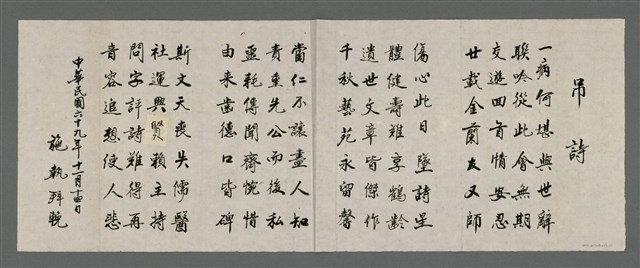 吊詩
一病何堪與世辭
聯吟從此會無期
交遊回首情安忍
廿載金蘭友又師
傷心此日墜詩星
體健壽難享鶴齡
遺世文章皆傑作
千秋藝苑永留馨
當仁不讓盡人知
責重先公而後私
噩耗傳聞齊惋惜
由來齒德口皆碑
斯文天喪失儒醫
社運興賢賴主持
問字評詩難得再
音容追想使人悲
中華民國六十九年十二月十四日
施執拜輓